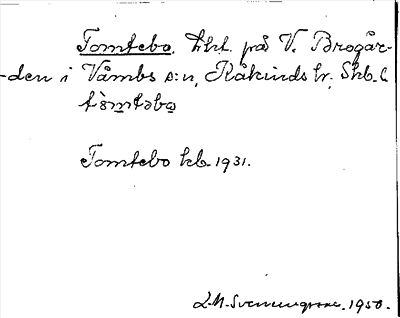 Tomtebo. Lht. på V. Brogår-
-den i Våmbs s:n, Kåkinds hr, Skb. l.
tòmtəbo
Tomtebo kb. 1931.
L.M. Svenungsson. 1950.